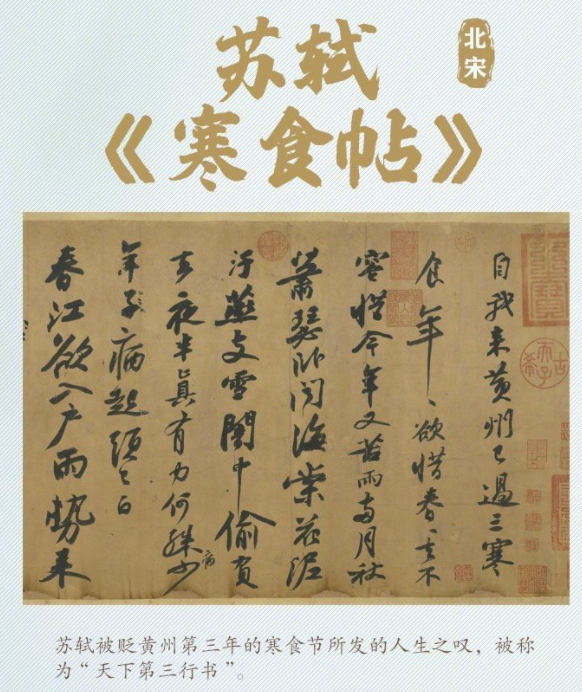 苏轼
北宋
《寒食帖》
自我来黄州已過三寒
食年〻欲惜春〻去不
容惜今年又苦雨兩月秋
萧瑟卧闻海棠花泥
污燕支雪闇中偷負
去夜半真有力何殊少
年子病起须已白
春江欲入户雨势来
病
苏轼被贬黄州第三年的寒食节所发的人生之叹，被称
为“天下第三行书”。